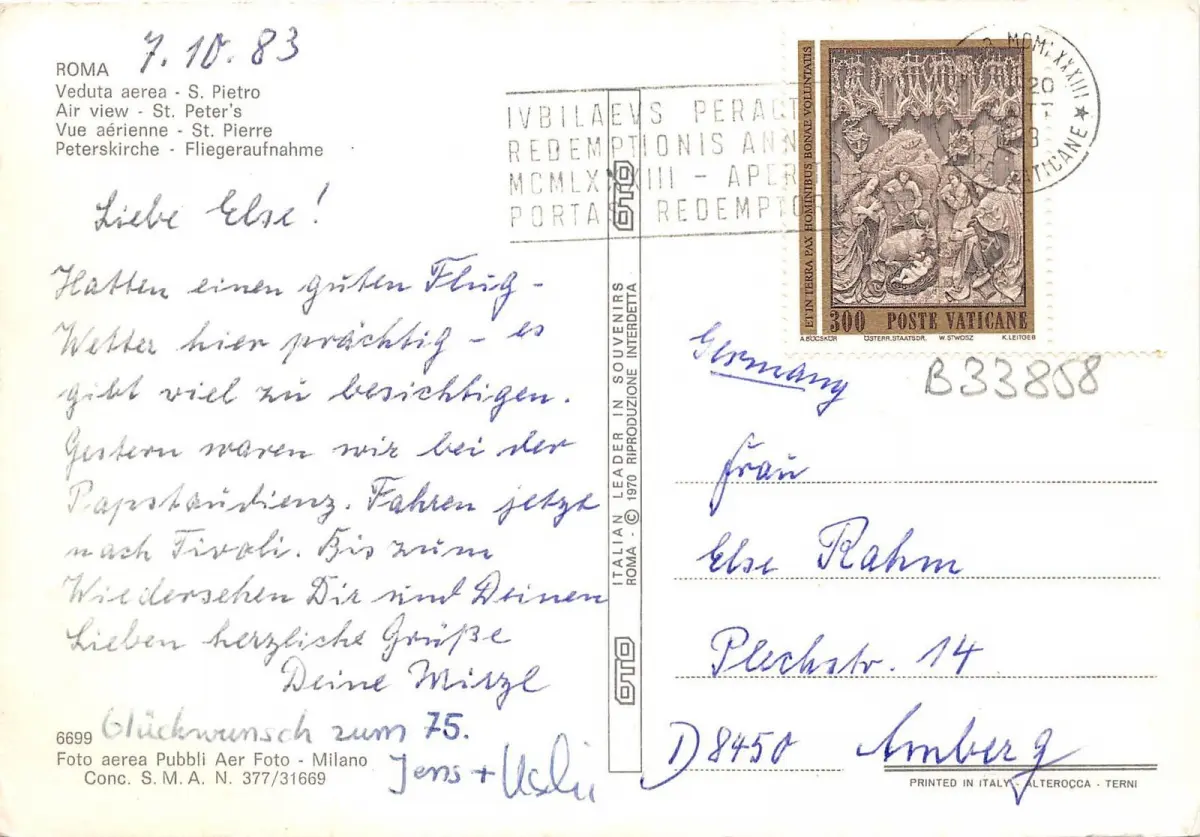 7.10.83
ROMA
Veduta aerea - S. Pietro
Air view - St. Peter's
Vue aérienne - St. Pierre
Peterskirche - Fliegeraufnahme
Liebe Else!
Hatten einen guten Flug -
Wetter hier prächtig - es
gibt viel zu besichtigen.
Gestern waren wir bei der
Papstaudienz. Fahren jetzt
nach Tivoli. Bis zum
Wiedersehen Dir und Deinen
Lieben herzliche Grüße
Deine Mirzl
Glückwunsch zum 75.
Jens +
6699
Foto aerea Pubbli Aer Foto - Milano
Conc. S. M. A. N. 377/31669
ITALIAN LEADER IN SOUVENIRS
ROMA - © 1970 RIPRODUZIONE INTERDETTA
IVBILAEVS PERACT
REDEMPTIONIS ANN
MCMLXXXIII - APER
PORTAS REDEMPTOR
MCMLXXXIII
20
VATICANE
ET IN TERRA PAX HOMINIBUS BONAE VOLUNTATIS
300 POSTE VATICANE
A.BÖCSKÖR ÖSTERR.STAATSDR. W.STWOSZ K.LEITGEB
B33858
Germany
Frau
Else Rahm
Plechstr. 14
D 8450 Amberg
PRINTED IN ITALY - ALTEROCCA - TERNI